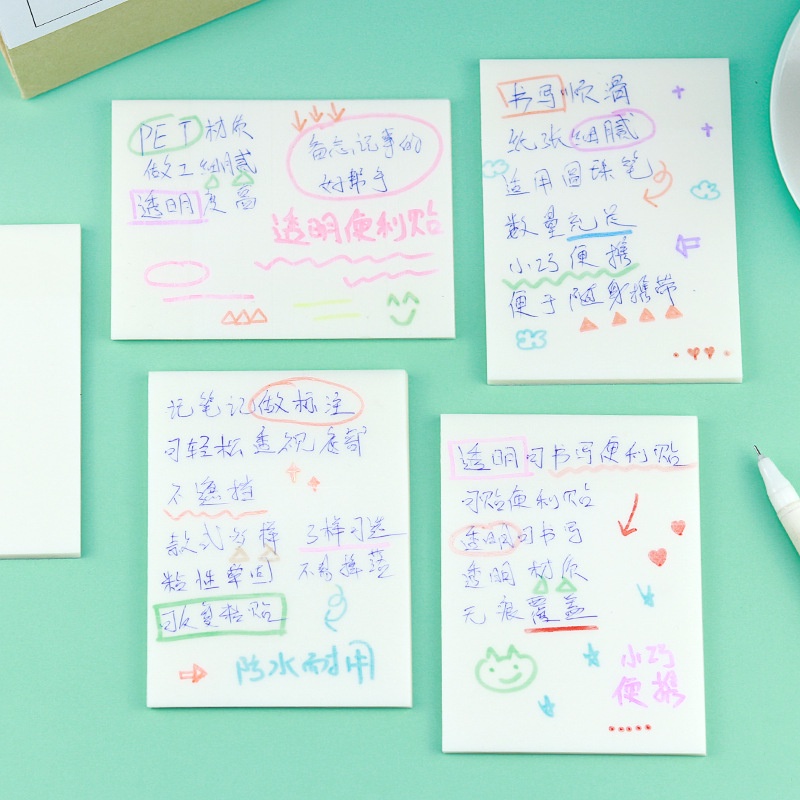 PET材质
做工细腻
透明度高
备忘记事的
好帮手
透明便利贴
书写顺滑
纸张细腻
适用圆珠笔
数量充足
小巧便携
便于随身携带
记笔记做标注
可轻松透视底部
不遮挡
款式多样 多样可选
粘性牢固 不易掉落
可反复粘贴
防水耐用
透明可书写便利贴
可贴便利贴
透明可书写
透明材质
无痕覆盖
小巧
便携